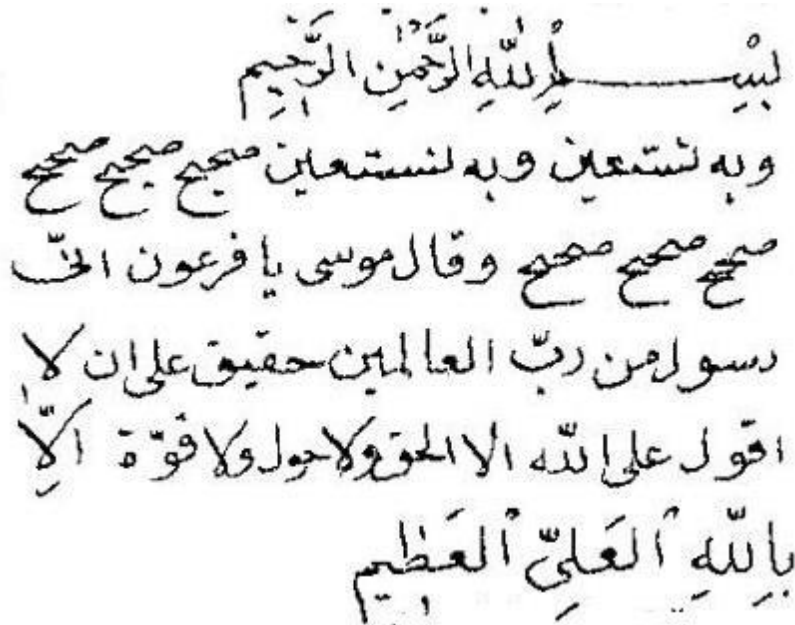 بِسْــــــمِ ٱللَّهِ الرَّحْمَٰنِ الرَّحِيمِ
وبه نستعين وبه نستعين صحيح صحيح صحيح
صحيح صحيح صحيح وقال موسى يا فرعون انى
رسول من ربّ العالمين حقيق على ان لا
اقول على الله الا الحق ولا حول ولا قوّة الَّا
بِاللَّهِ ٱلعَلِيِّ ٱلعَظِيمِ